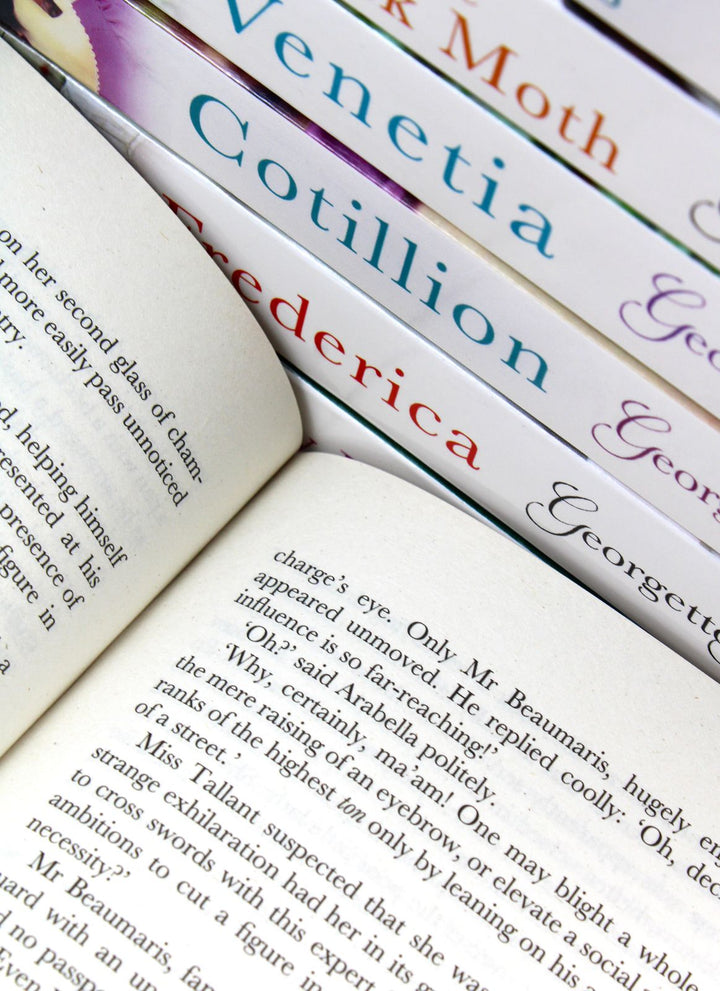 k Moth
Venetia
Geo
Cotillion
Georg
Frederica
Georgette
on her second glass of cham-
more easily pass unnoticed
etry.
helping himself
resented at his
presence of
figure in
a
charge's eye. Only Mr Beaumaris, hugely en
appeared unmoved. He replied coolly: 'Oh, dec
influence is so far-reaching!'
'Oh?' said Arabella politely.
'Why, certainly, ma'am! One may blight a whole
the mere raising of an eyebrow, or elevate a social
ranks of the highest ton only by leaning on his a
of a street.'
Miss Tallant suspected that she was
strange exhilaration had her in its g
to cross swords with this expert
ambitions to cut a figure in
necessity?'
Mr Beaumaris, far
uard with an un
no passpo
Even